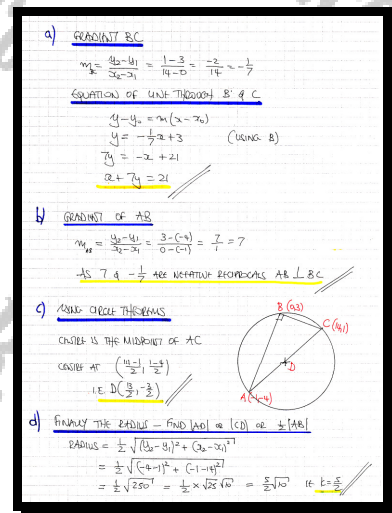 a) GRADIENT BC
m_BC = (y₂-y₁)/(x₂-x₁) = (1-3)/(14-0) = -2/14 = -1/7
EQUATION OF LINE THROUGH B & C
y-y₀ = m(x-x₀)
y = -1/7 x + 3 (USING B)
7y = -x + 21
x + 7y = 21
b) GRADIENT OF AB
m_AB = (y₂-y₁)/(x₂-x₁) = (3-(-4))/(0-(-1)) = 7/1 = 7
AS 7 & -1/7 ARE NEGATIVE RECIPROCALS AB ⊥ BC
c) USING CIRCLE THEOREMS
CENTRE IS THE MIDPOINT OF AC
CENTRE AT ((14-1)/2, (1-4)/2)
I.E D(13/2, -3/2)
B (0,3)
C (14,1)
D
A(-1,-4)
d) FINALLY THE RADIUS – FIND |AD| OR |CD| OR ½|AB|
RADIUS = ½ √((y₂-y₁)² + (x₂-x₁)²)
= ½ √((-4-1)² + (-1-14)²)
= ½ √250 = ½ × √25 √10 = 5/2 √10 IE k = 5/2